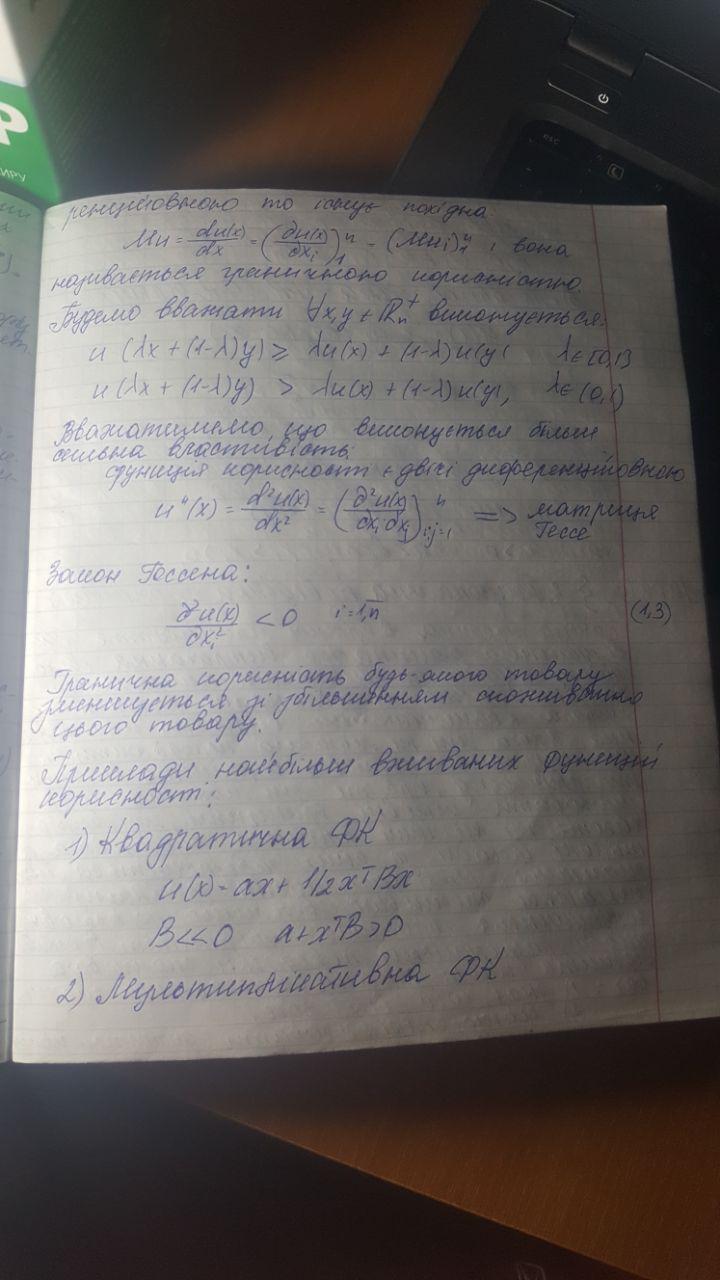 Р
МИРУ
ренційовною то існує похідна
Mu = du(x)/dx = (∂u(x)/∂xᵢ)₁ⁿ = (Muᵢ)₁ⁿ , вона
називається граничною корисністю.
Будемо вважати ∀x,y ∈ ℝₙ⁺ виконується:
u (λx + (1-λ)y) ≥ λu(x) + (1-λ)u(y) λ∈[0,1]
u(λx + (1-λ)y) > λu(x) + (1-λ)u(y), λ∈(0,1)
Вважатимемо, що виконується більш
сильна властивість:
функція корисності є двічі диференційовною
u''(x) = d²u(x)/dx² = (∂²u(x)/∂xᵢ∂xⱼ)ⁿᵢ,ⱼ₌₁ => матриця
Гессе
Закон Госсена:
∂²u(x)/∂xᵢ² < 0 i=1,n̅ (1,3)
Гранична корисність будь-якого товару
зменшується зі збільшенням споживання
цього товару.
Приклади найбільш вживаних функцій
корисності:
1) Квадратична ФК
u(x) = ax + 1/2 xᵀBx
B<<0 a+xᵀB>0
2) Мультиплікативна ФК
esc